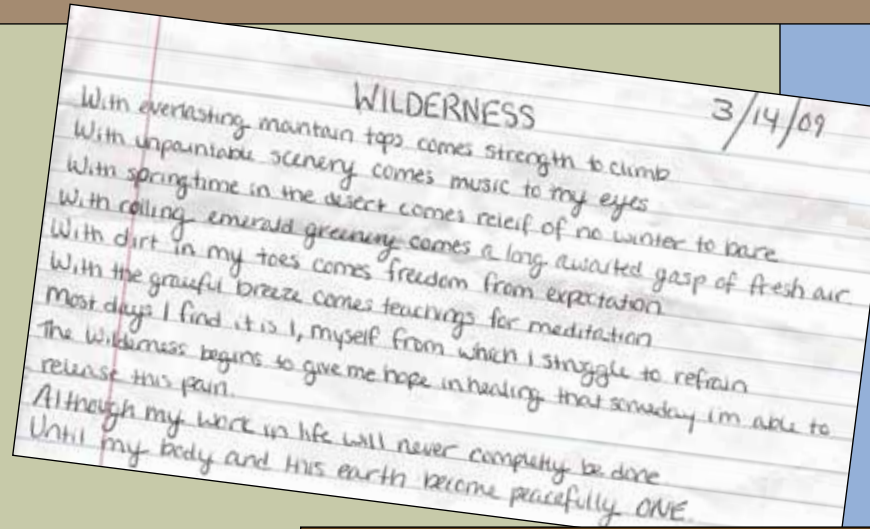 WILDERNESS
3/14/09
With everlasting mountain tops comes strength to climb
With unpaintable scenery comes music to my eyes
With springtime in the desert comes releif of no winter to bare
With rolling emerald greenery comes a long awaited gasp of fresh air
With dirt in my toes comes freedom from expectation
With the graceful breeze comes teachings for meditation
most days I find it is I, myself from which I struggle to refrain
The Wilderness begins to give me hope in healing that someday im able to
release this pain.
Although my work in life will never completly be done
Until my body and this earth become peacefully ONE.